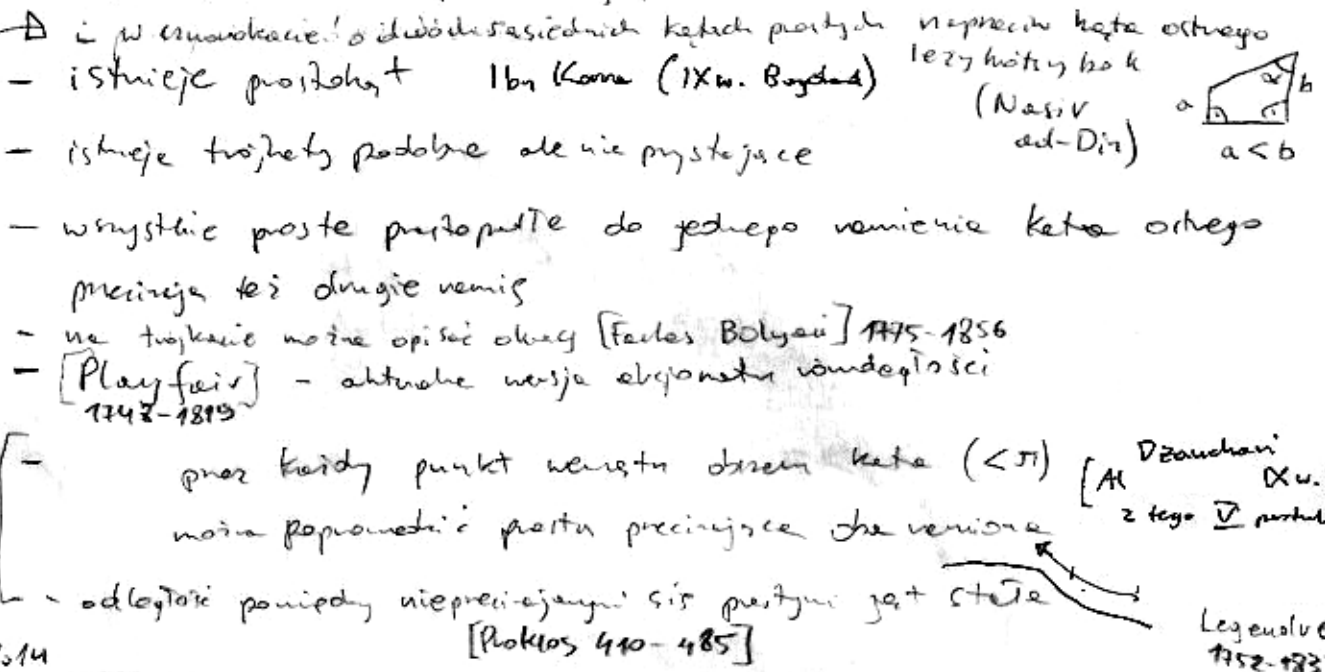 i w czworokącie o dwóch sąsiednich kątach prostych naprzeciw kąta ostrego
leży krótszy bok
(Nasir
ad-Din)
a
α
b
a < b
- istnieje prostokąt Ibn Korra (IX w. Bagdad)
- istnieją trójkąty podobne ale nie przystające
- wszystkie proste prostopadłe do jednego ramienia kąta ostrego
przecinają też drugie ramię
- na trójkącie można opisać okrąg [Farkas Bolyai] 1775-1856
- [Playfair] - aktualna wersja aksjomatu równoległości
1748-1819
- przez każdy punkt wewnątrz kąta (<π)
można poprowadzić prostą przecinającą oba ramiona
[Al Dżauchari IX w.
z tego V
- odległość pomiędzy nieprzecinającymi się prostymi jest stała
[Proklos 410-485]